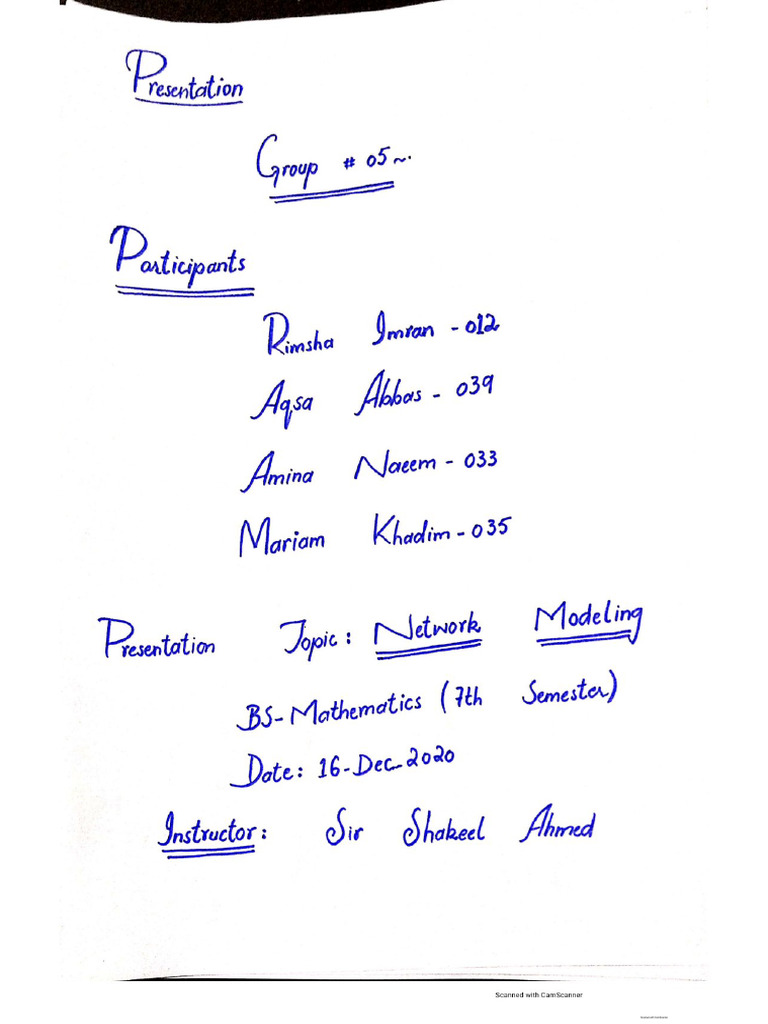 Presentation
Group # 05~.
Participants
Rimsha Imran - 012
Aqsa Abbas - 039
Amina Naeem - 033
Mariam Khadim - 035
Presentation Topic: Network Modeling
BS-Mathematics (7th Semester)
Date: 16-Dec-2020
Instructor: Sir Shakeel Ahmed
Scanned with CamScanner